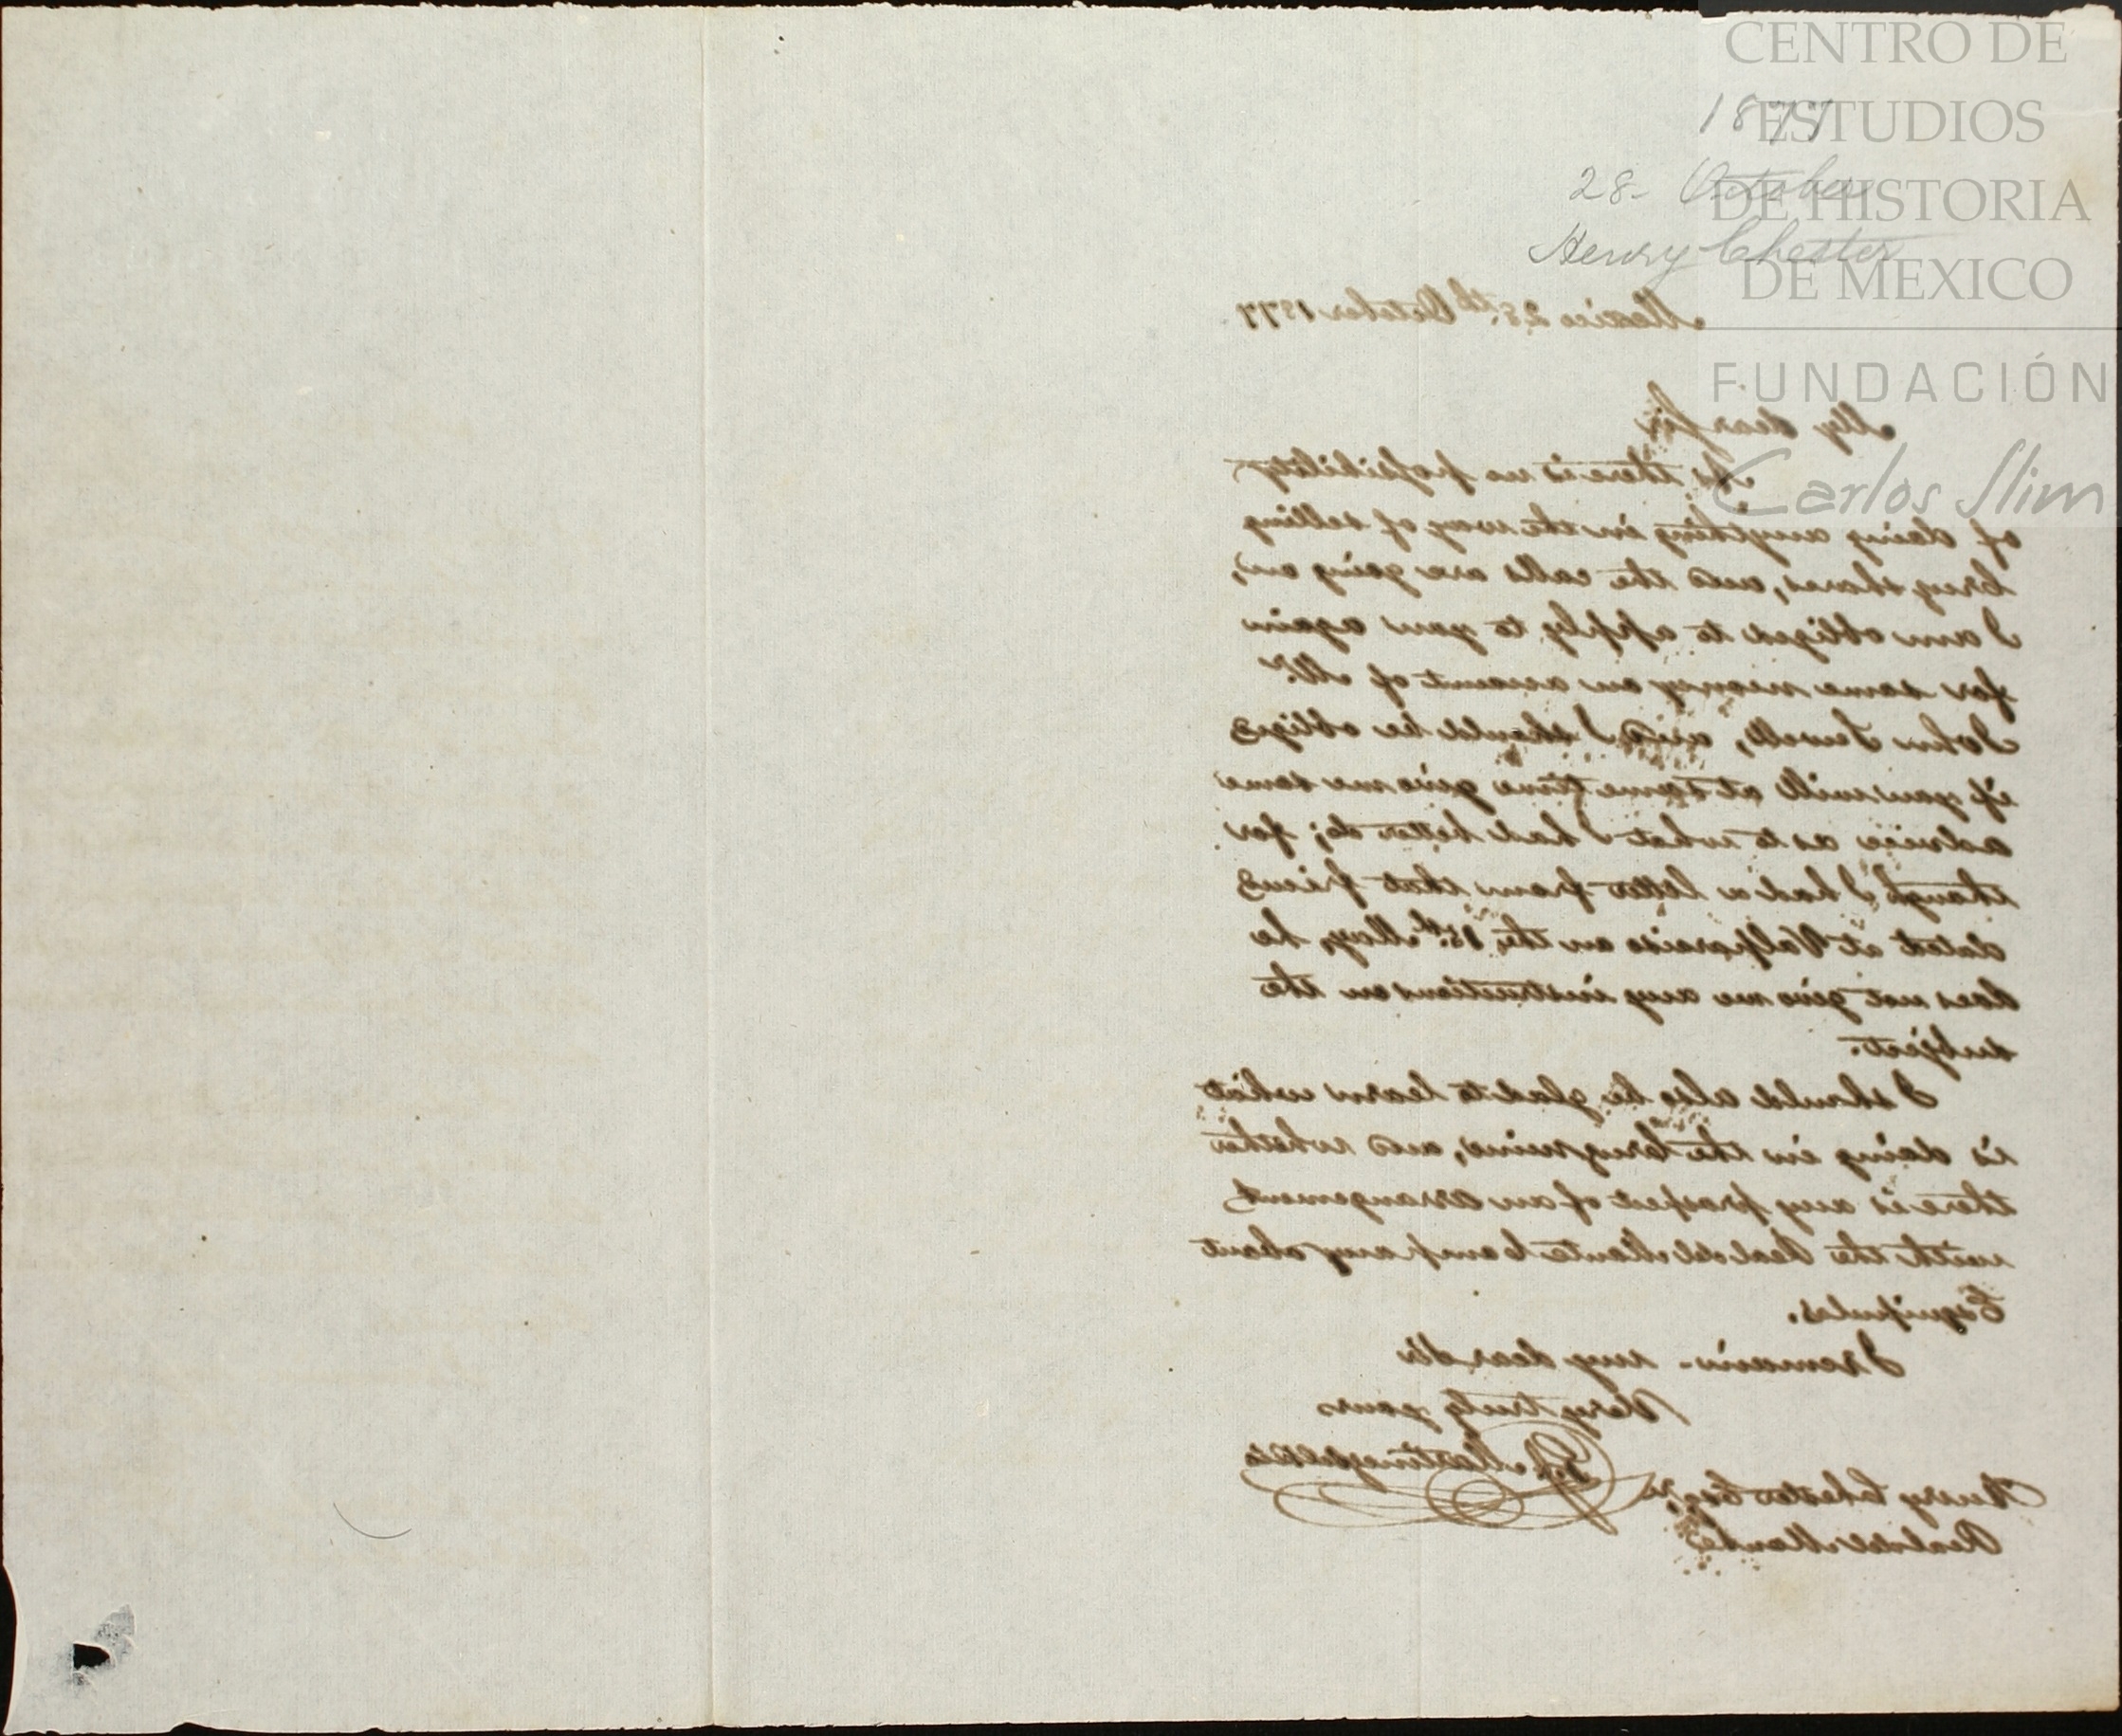 CENTRO DE
ESTUDIOS
DE HISTORIA
DE MEXICO
FUNDACIÓN
Carlos Slim
1877
28- October
Henry Chester
Mexico 28th October 1877
My dear Sir,
As there is no possibility
of doing anything in the way of selling
shares, and the calls are going on,
I am obliged to apply to you again
for some money on account of Mr.
John, and I should be obliged
if you will at same time give me some
advice as to what I had better do; for
though I had a letter from that friend
dated at Valparaiso on the 18th May, he
does not give me any instructions on the
subject.
I should also be glad to learn what
is doing in the mine, and whether
there is any prospect of an arrangement
with the Real del Monte Company about
Esquipulas.
I remain - my dear Sir
Very truly yours
Henry Chester Esqre
Real del Monte